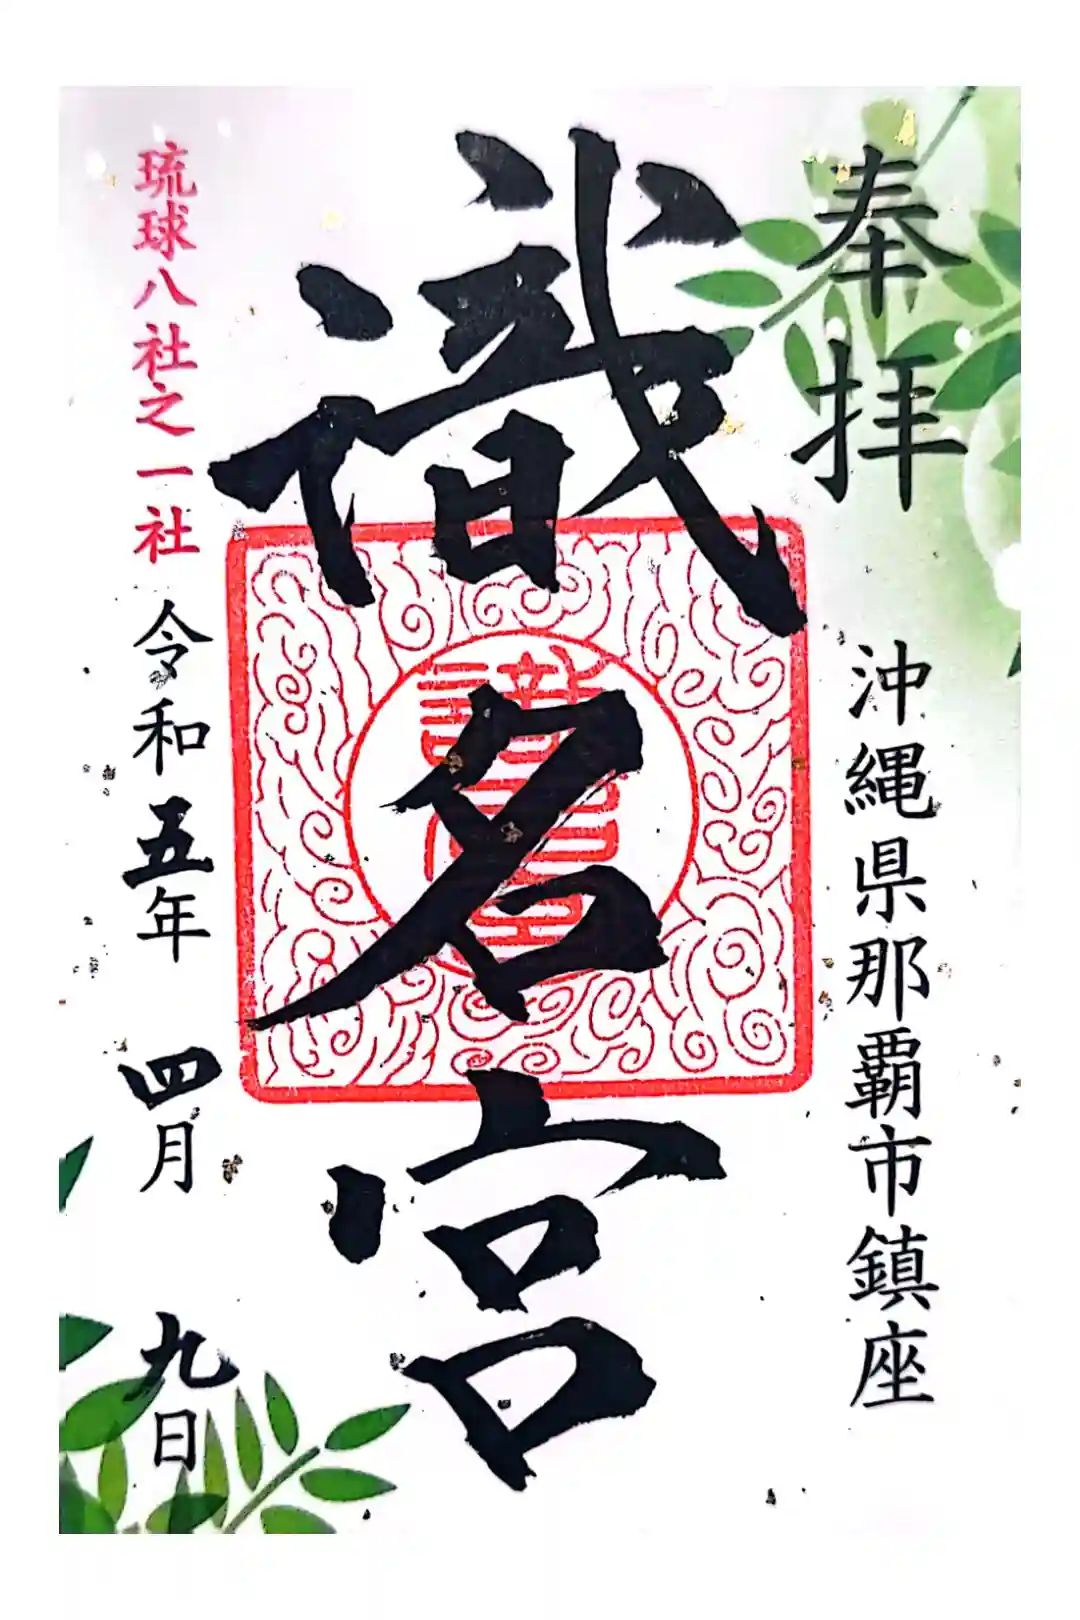 奉拝
沖縄県那覇市鎮座
識名宮
識名宮
琉球八社之一社
令和五年 四月 九日